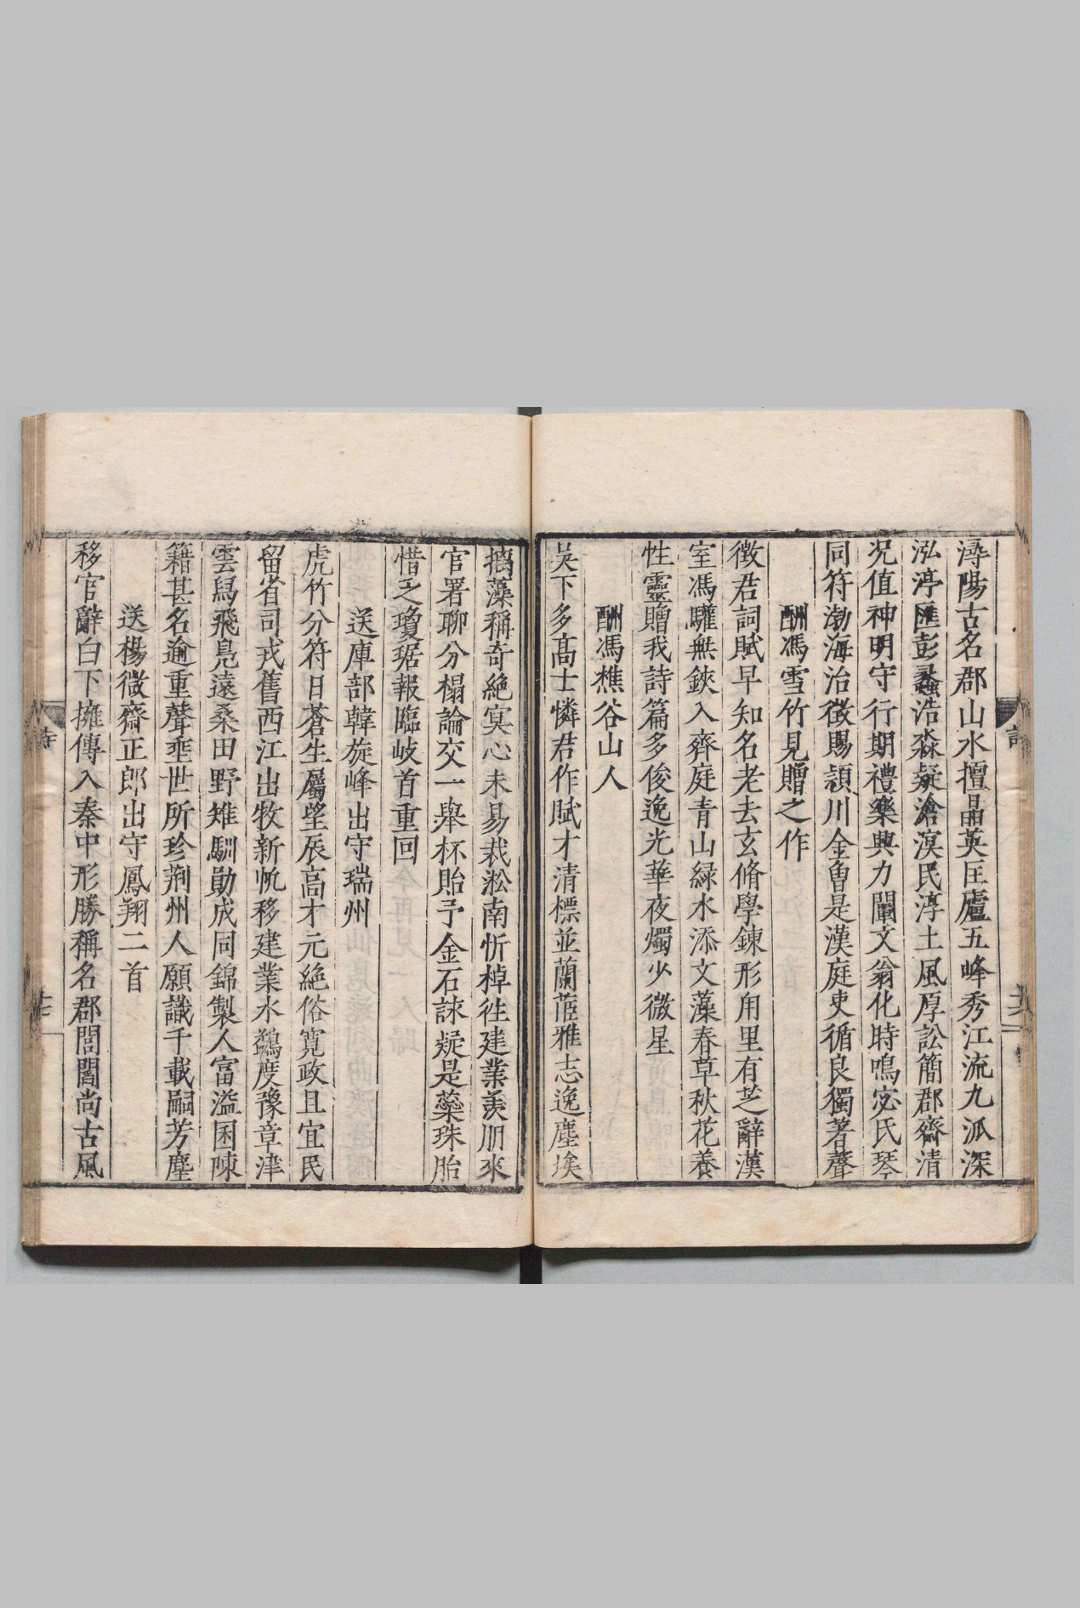 潯陽古名郡山水擅晶英匡廬五峰秀江流九派深
泓渟匯彭蠡浩淼凝滄溟民淳土風厚訟簡郡齋清
况值神明守行期禮樂興力闡文翁化時鳴宓氏琴
同符渤海治徵賜潁川金曾是漢庭吏循良獨著聲
酬馮雪竹見贈之作
徵君詞賦早知名老去玄脩學鍊形甪里有芝辭漢
室馮驩無鋏入齊庭青山緑水添文藻春草秋花養
性靈贈我詩篇多俊逸光華夜燭少微星
酬馮樵谷山人
吳下多高士憐君作賦才清標並蘭茝雅志逸塵埃
摛藻稱奇絶冥心未易裁淞南忻棹徃建業羨朋來
官署聊分榻論交一舉杯貽予金石誄疑是蘂珠胎
惜乏瓊琚報臨岐首重回
送庫部韓旋峰出守瑞州
虎竹分符日蒼生屬望辰高才元絶俗寛政且宜民
留省司戎舊西江出牧新帆移建業水鷁度豫章津
雲舄飛鳧遠桑田野雉馴勛成同錦製人富溢囷陳
籍甚名逾重聲垂世所珍荆州人願識千載嗣芳塵
送楊微齋正郎出守鳳翔二首
移官辭白下擁傳入秦中形勝稱名郡閭閻尚古風